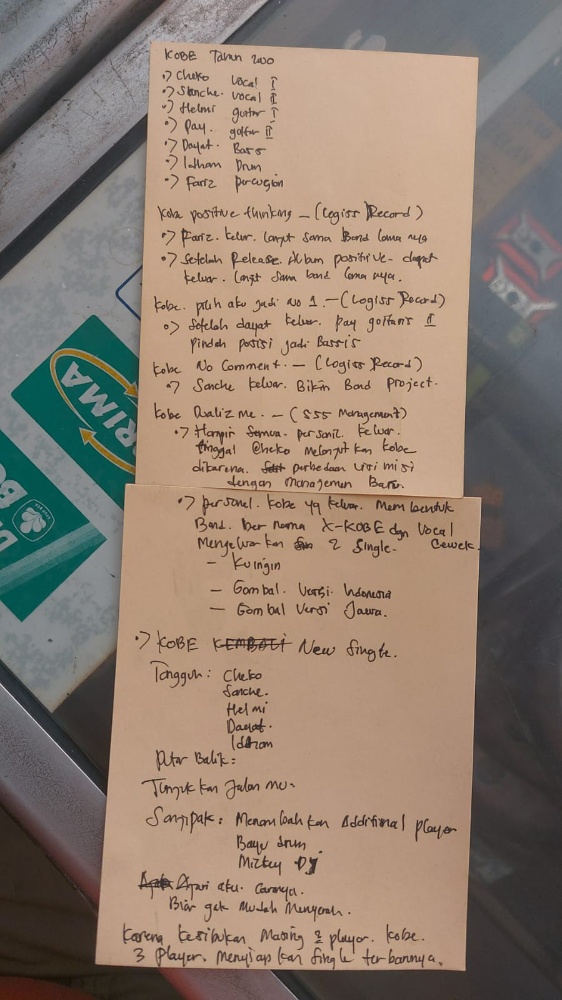 KOBE Tahun 2000
•> Cheko vocal I
•> Sanche. vocal II
•> Helmi guitar I
•> Pay. guitar II
•> Dayat. Bass
•> Idham Drum
•> Fariz percusion
Kobe positive thinking – (Logiss Record)
•> Fariz. keluar. lanjut sama Band lama nya
•> Setelah Release. Album positive – dayat
keluar. lanjut sama band lama nya.
Kobe. pilih aku jadi no 1. – (Logiss Record)
•> Setelah dayat keluar. pay guitaris II
pindah posisi jadi Bassis
Kobe No Comment. – (Logiss Record)
•> Sanche keluar. Bikin Band Project.
Kobe Dualiz me. – (SSS Management)
•> Hampir Semua. personil keluar.
tinggal Cheko melanjutkan Kobe
dikarena. perbedaan visi misi
dengan Manajemen Baru.
•> personel. Kobe yg keluar. Membentuk
Band. ber nama X-KOBE dgn Vocal
Cewek.
Mengeluarkan 2 Single.
– Kuingin
– Gombal. Versi. Indonesia
– Gombal Versi Jawa.
•> KOBE KEMBALI New Single.
Tangguh: Cheko
Sanche.
Helmi
Dayat.
Idham
Putar Balik:
Tunjukkan Jalan mu.
Menambahkan Additional player
Bayu drum
Mickey DJ
Ajari aku. Caranya.
Biar gak Mudah Menyerah.
Karena Kesibukan Masing 2 player. Kobe.
3 Player. Menyiapkan Single terbarunya.
PRIMA